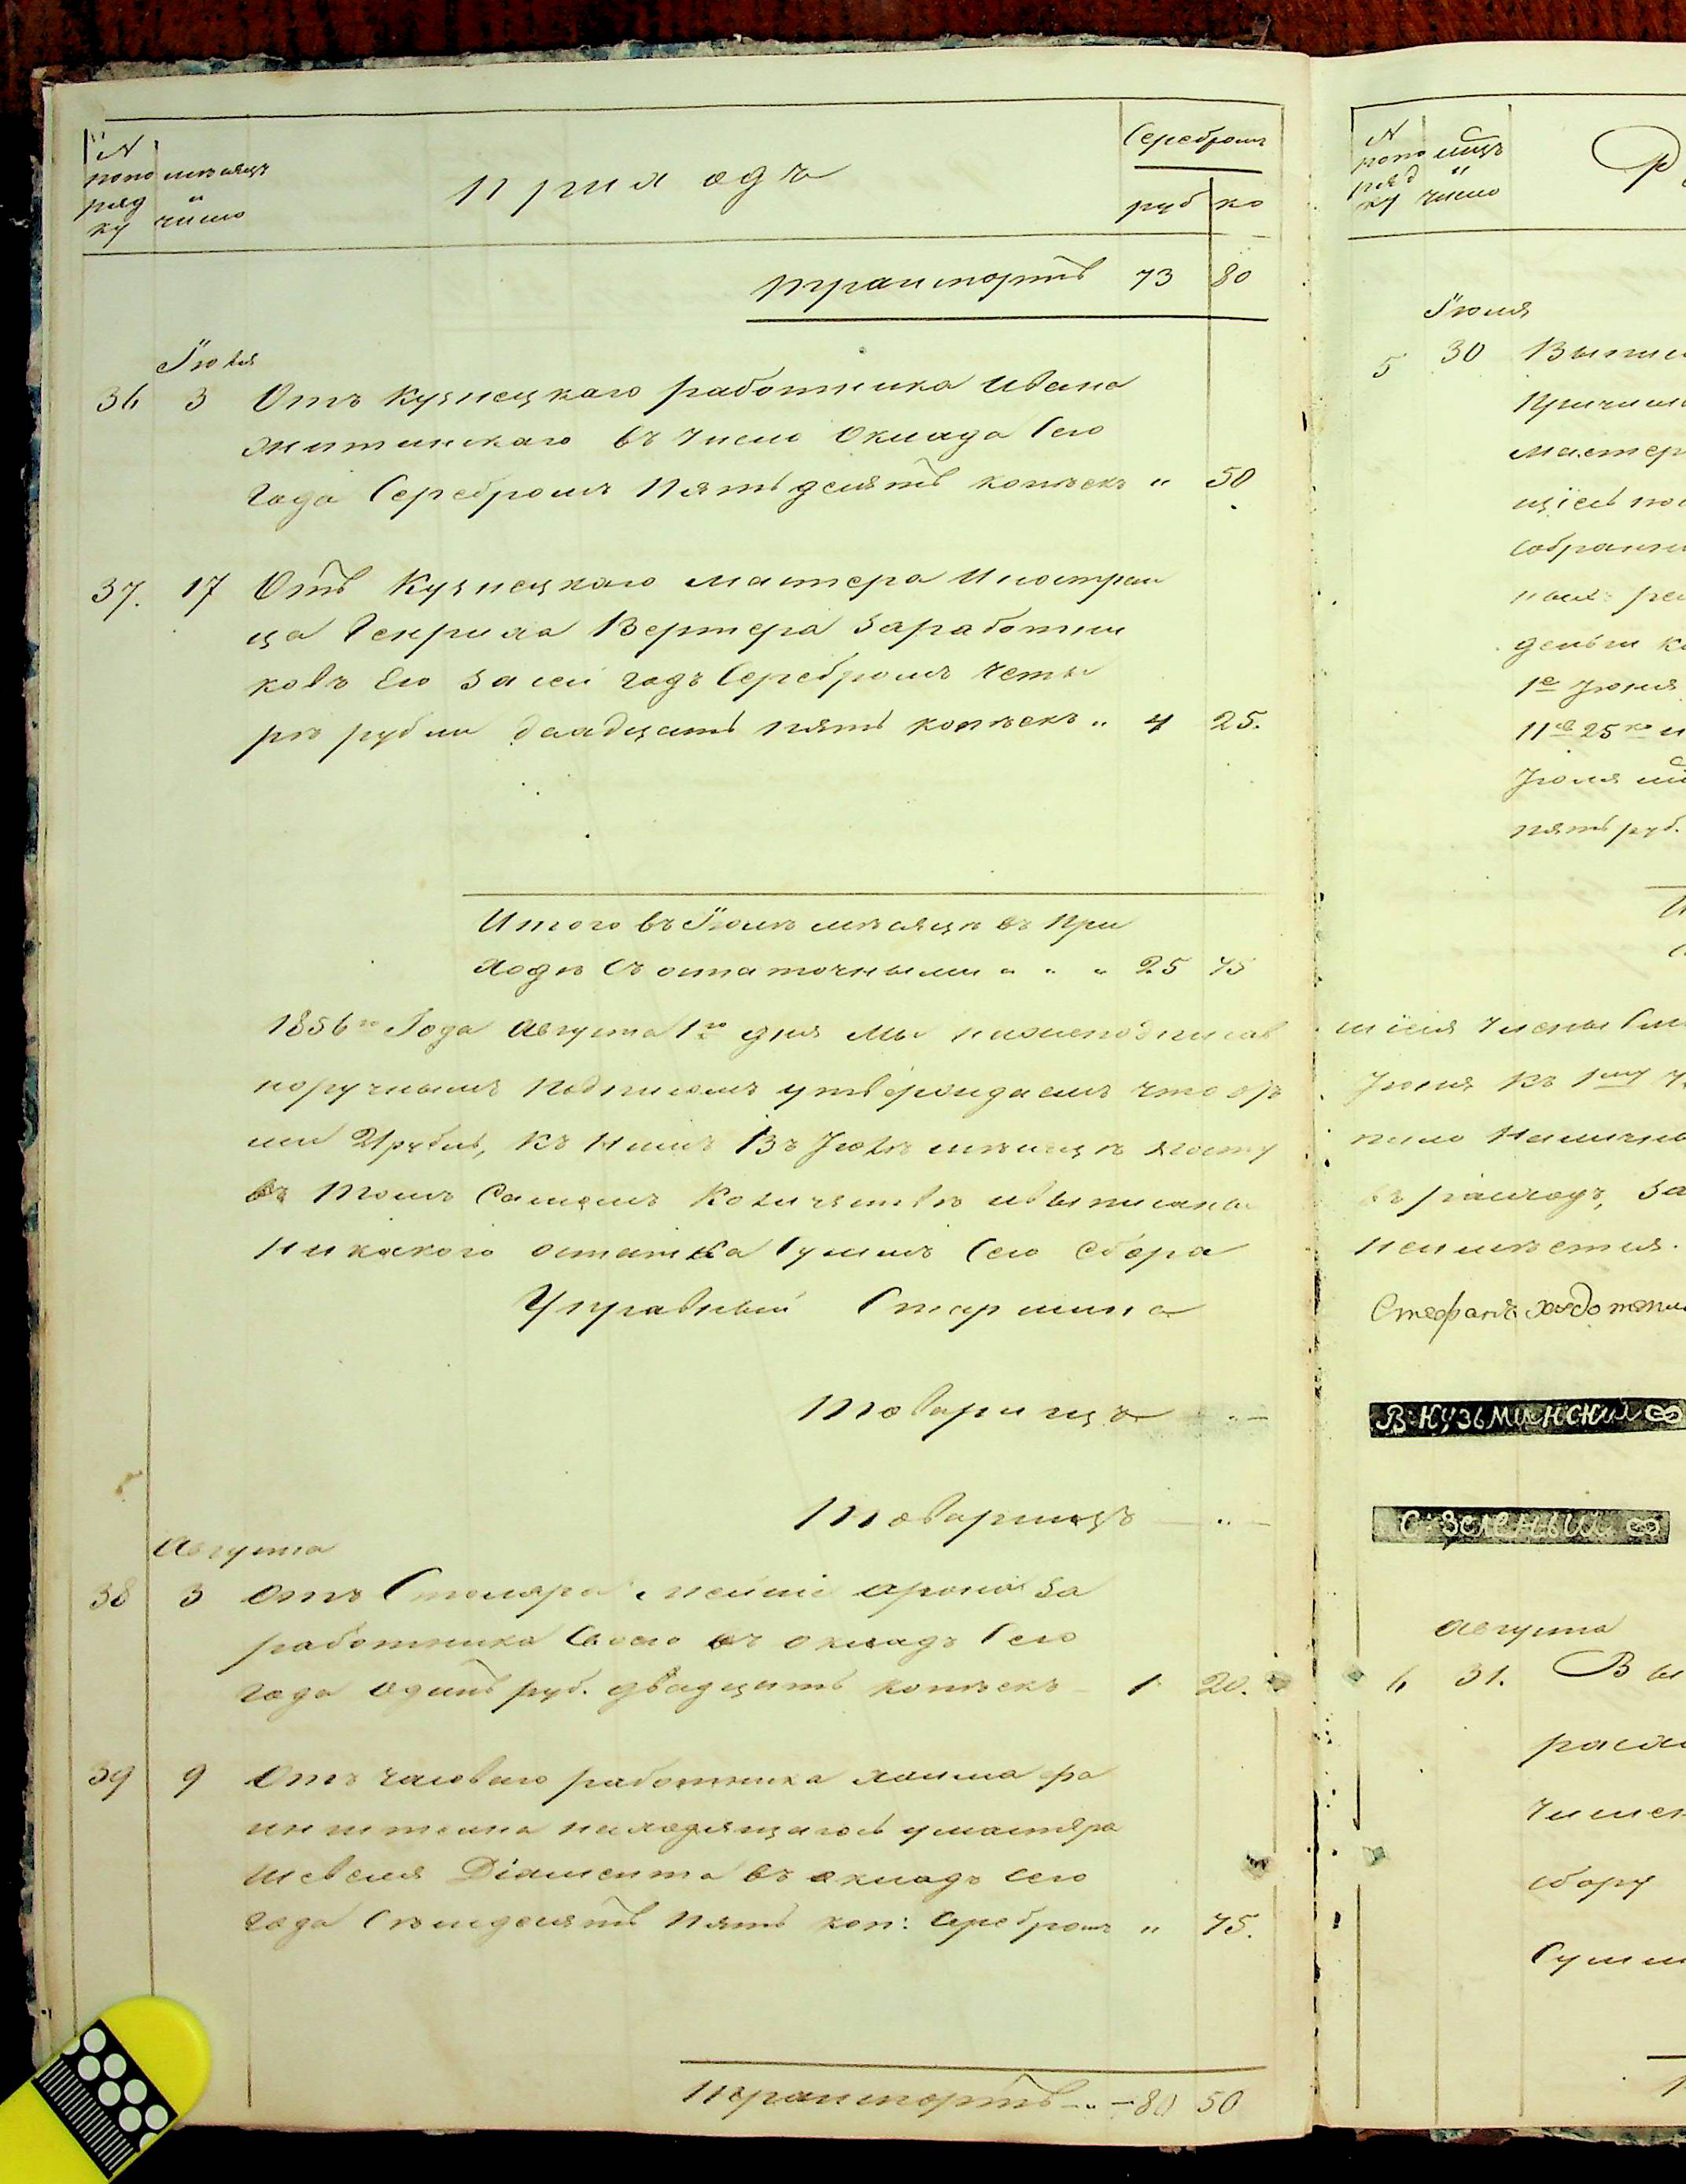 № поро ряд ку
мѣсяцъ и число
Приходъ
Серебромъ
руб ко
Транспортъ 73 80
Іюля
36 3 Отъ Кузнецкаго работника Ивана
Житинскаго въ число Оклада Сего
Года Серебромъ Пятьдесятъ копѣекъ " 50
37. 17 Отъ Кузнецкаго мастера Иностран
ца Генриха Вернера Заработни
ковъ Его За сей годъ Серебромъ Четы
ре рубли двадцать пять копѣекъ " 4 25.
Итого въ Іюлѣ мѣсяцѣ въ При
ходѣ Съ остаточными " " " 25 75
1856го Года Августа 1го дня Мы нижеподписав
норучнымъ Подписомъ утверждаемъ что
ми 21 рубль, Къ Нимъ Въ Іюлѣ мѣсяцѣ
въ Томъ Самомъ Количествѣ и выписаны
Никакого остатка Суммъ Сего Сбора
Управный Старшина
Товарищъ
Товарищъ
Августа
38 3 Отъ Столяра Арона За
работника Своего въ окладъ Сего
года одинъ руб. двадцать копѣекъ 1 20.
39 9 Отъ часоваго работника Хаима Фа
инштейна находящагось у мастера
Шевеля Діамента въ окладъ сего
года Семдесятъ Пять коп: Серебромъ " 75.
Транспортъ 80 50
№ поро ряд ку
мцъ и число
Р
Іюля
5 30 Выпи
Причи
мастер
цієй по
собранн
ныхъ ре
деньги К
1е Іюня
11 е 25 ко и
Іюля
пять руб.
шіеся Члены
Іюня Къ 1му
пило Наличны
въ расходъ, За
Неимѣется.
Стефанъ
В КУЗЬМИНСКИЙ
С ЗЕЛЕНЫЙ
Августа
6 31. Вы
расхо
Числен
сбору
Сумм